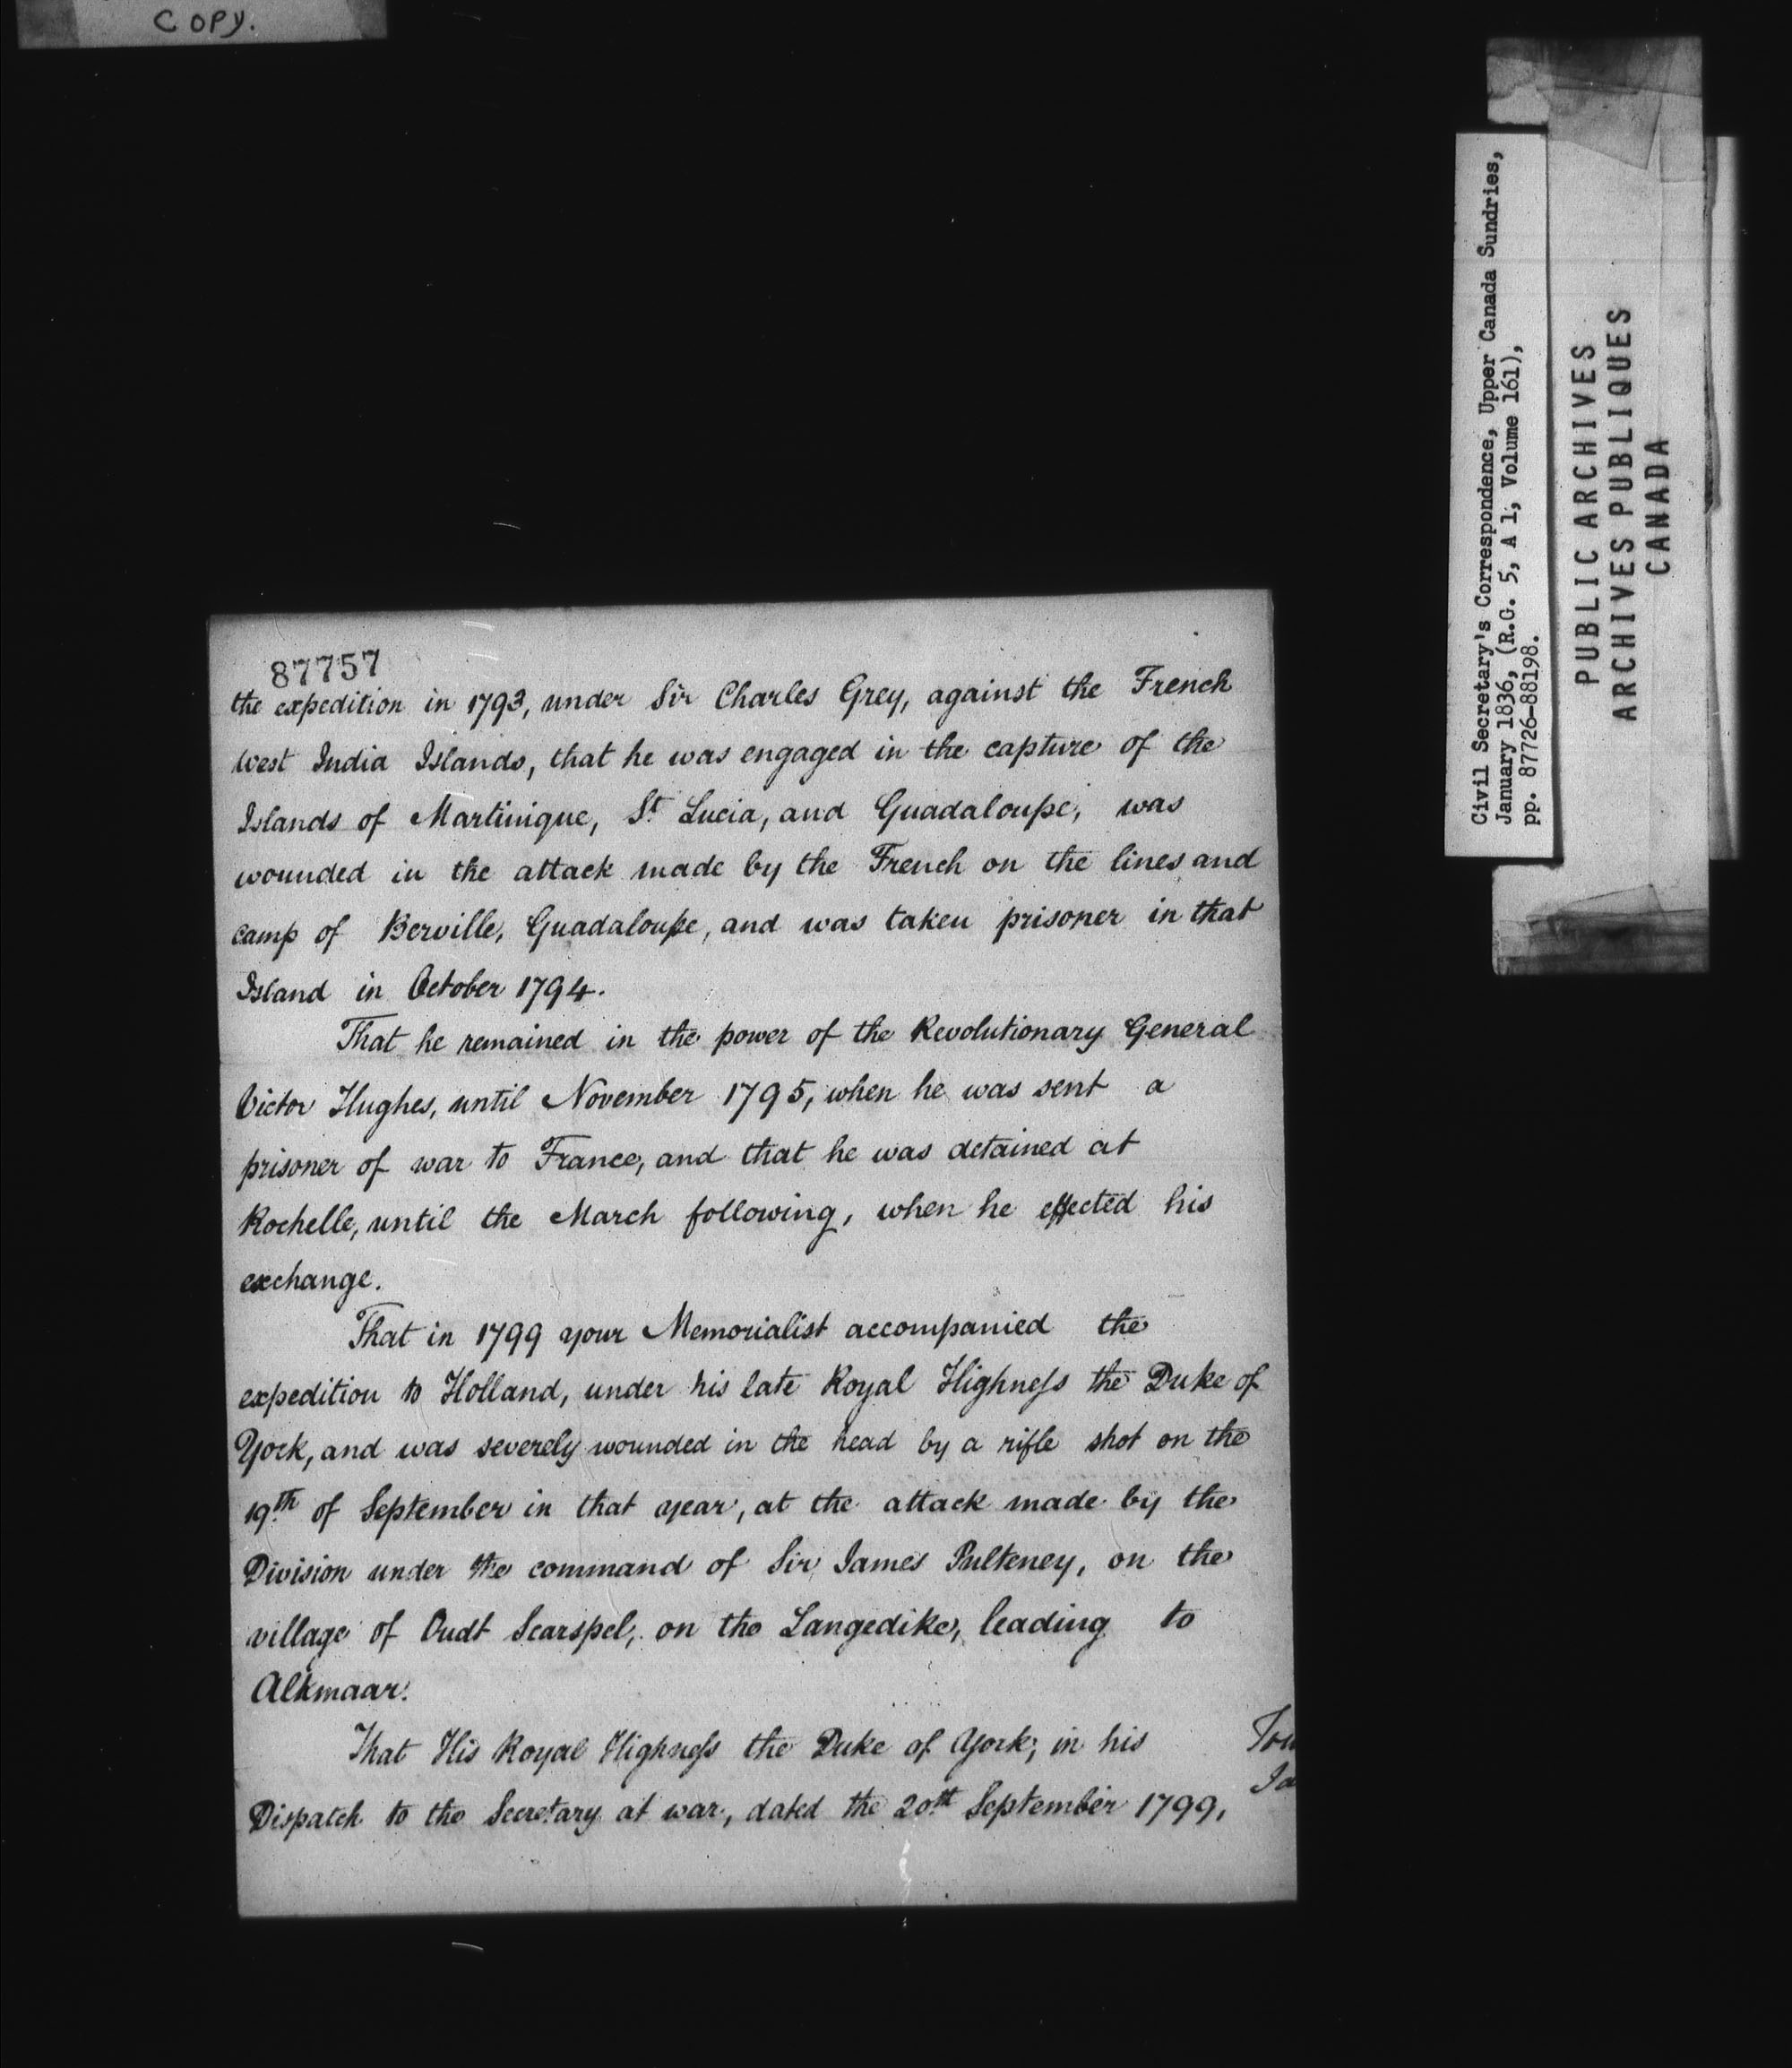 COPY.
87757
the expedition in 1793, under Sir Charles Grey, against the French
West India Islands, that he was engaged in the capture of the
Islands of Martinique, St. Lucia, and Guadaloupe, was
wounded in the attack made by the French on the lines and
camp of Berville, Guadaloupe, and was taken prisoner in that
Island in October 1794.
That he remained in the power of the Revolutionary General
Victor Hughes, until November 1795, when he was sent a
prisoner of war to France, and that he was detained at
Rochelle, until the March following, when he effected his
exchange.
That in 1799 your Memorialist accompanied the
expedition to Holland, under his late Royal Highneſs the Duke of
York, and was severely wounded in the head by a rifle shot on the
19th of September in that year, at the attack made by the
Division under the command of Sir James Pulteney, on the
village of Oudt Scarspel, on the Langedike, leading to
Alkmaar.
That His Royal Highneſs the Duke of York, in his
Dispatch to the Secretary at war, dated the 20th September 1799,
Civil Secretary's Correspondence, Upper Canada Sundries,
January 1836, (R.G. 5, A 1, Volume 161),
pp. 87726-88198.
PUBLIC ARCHIVES
ARCHIVES PUBLIQUES
CANADA